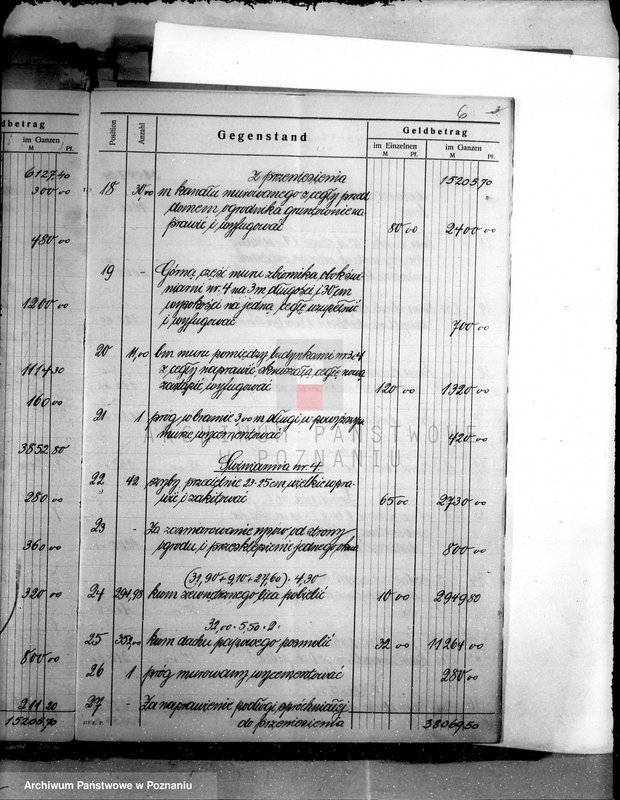 dbetrag
im Ganzen
M Pf.
6127,40
300 00
480 00
1200 00
1114 30
160 00
3852 80
280 00
360 00
320 00
800 00
211 20
15205,70
6
Position Anzahl Gegenstand Geldbetrag
im Einzelnen im Ganzen
M Pf. M Pf.
Z przeniesienia 15205 70
18 30,00 m kanału murowanego z cegły przed
domem ogrodnika gruntownie na
prawić i wyfugować 80 00 2400 00
19 - Górną część muru zbiornika obok świ
niarni nr. 4 na 3 m długości i 30 cm
wysokości na jedną cegłę uzupełnić
i wyfugować 700 00
20 11,00 bm muru pomiędzy budynkami nr 3 i 4
z cegły naprawić okruszałą cegłę nową
zastąpić, wyfugować 120 00 1320 00
21 1 próg w bramie 3,00 m długi w powyższym
murze wycementować 420 00
Świniarnia nr. 4
22 42 szyby przeciętnie 23 · 25 cm wielkie wpra
wić i zakitować 65 00 2730 00
23 - Za zasmarowanie rysów od strony
ogrodu, i przesklepienie jednego okna 800 00
(31,90 + 9,10 + 27,60) · 4,30
24 294,98 kwm zewnętrznego lica pobielić 10 00 2949 80
32,00 · 5,50 · 2 ·
25 352,00 kwm dachu papowego posmolić 32 00 11264 00
26 1 próg murowany wycementować 280 00
27 - Za naprawienie podłogi spróchniałej
do przeniesienia 38069,50
ARCHIWUM PAŃSTWOWE
W POZNANIU
Archiwum Państwowe w Poznaniu